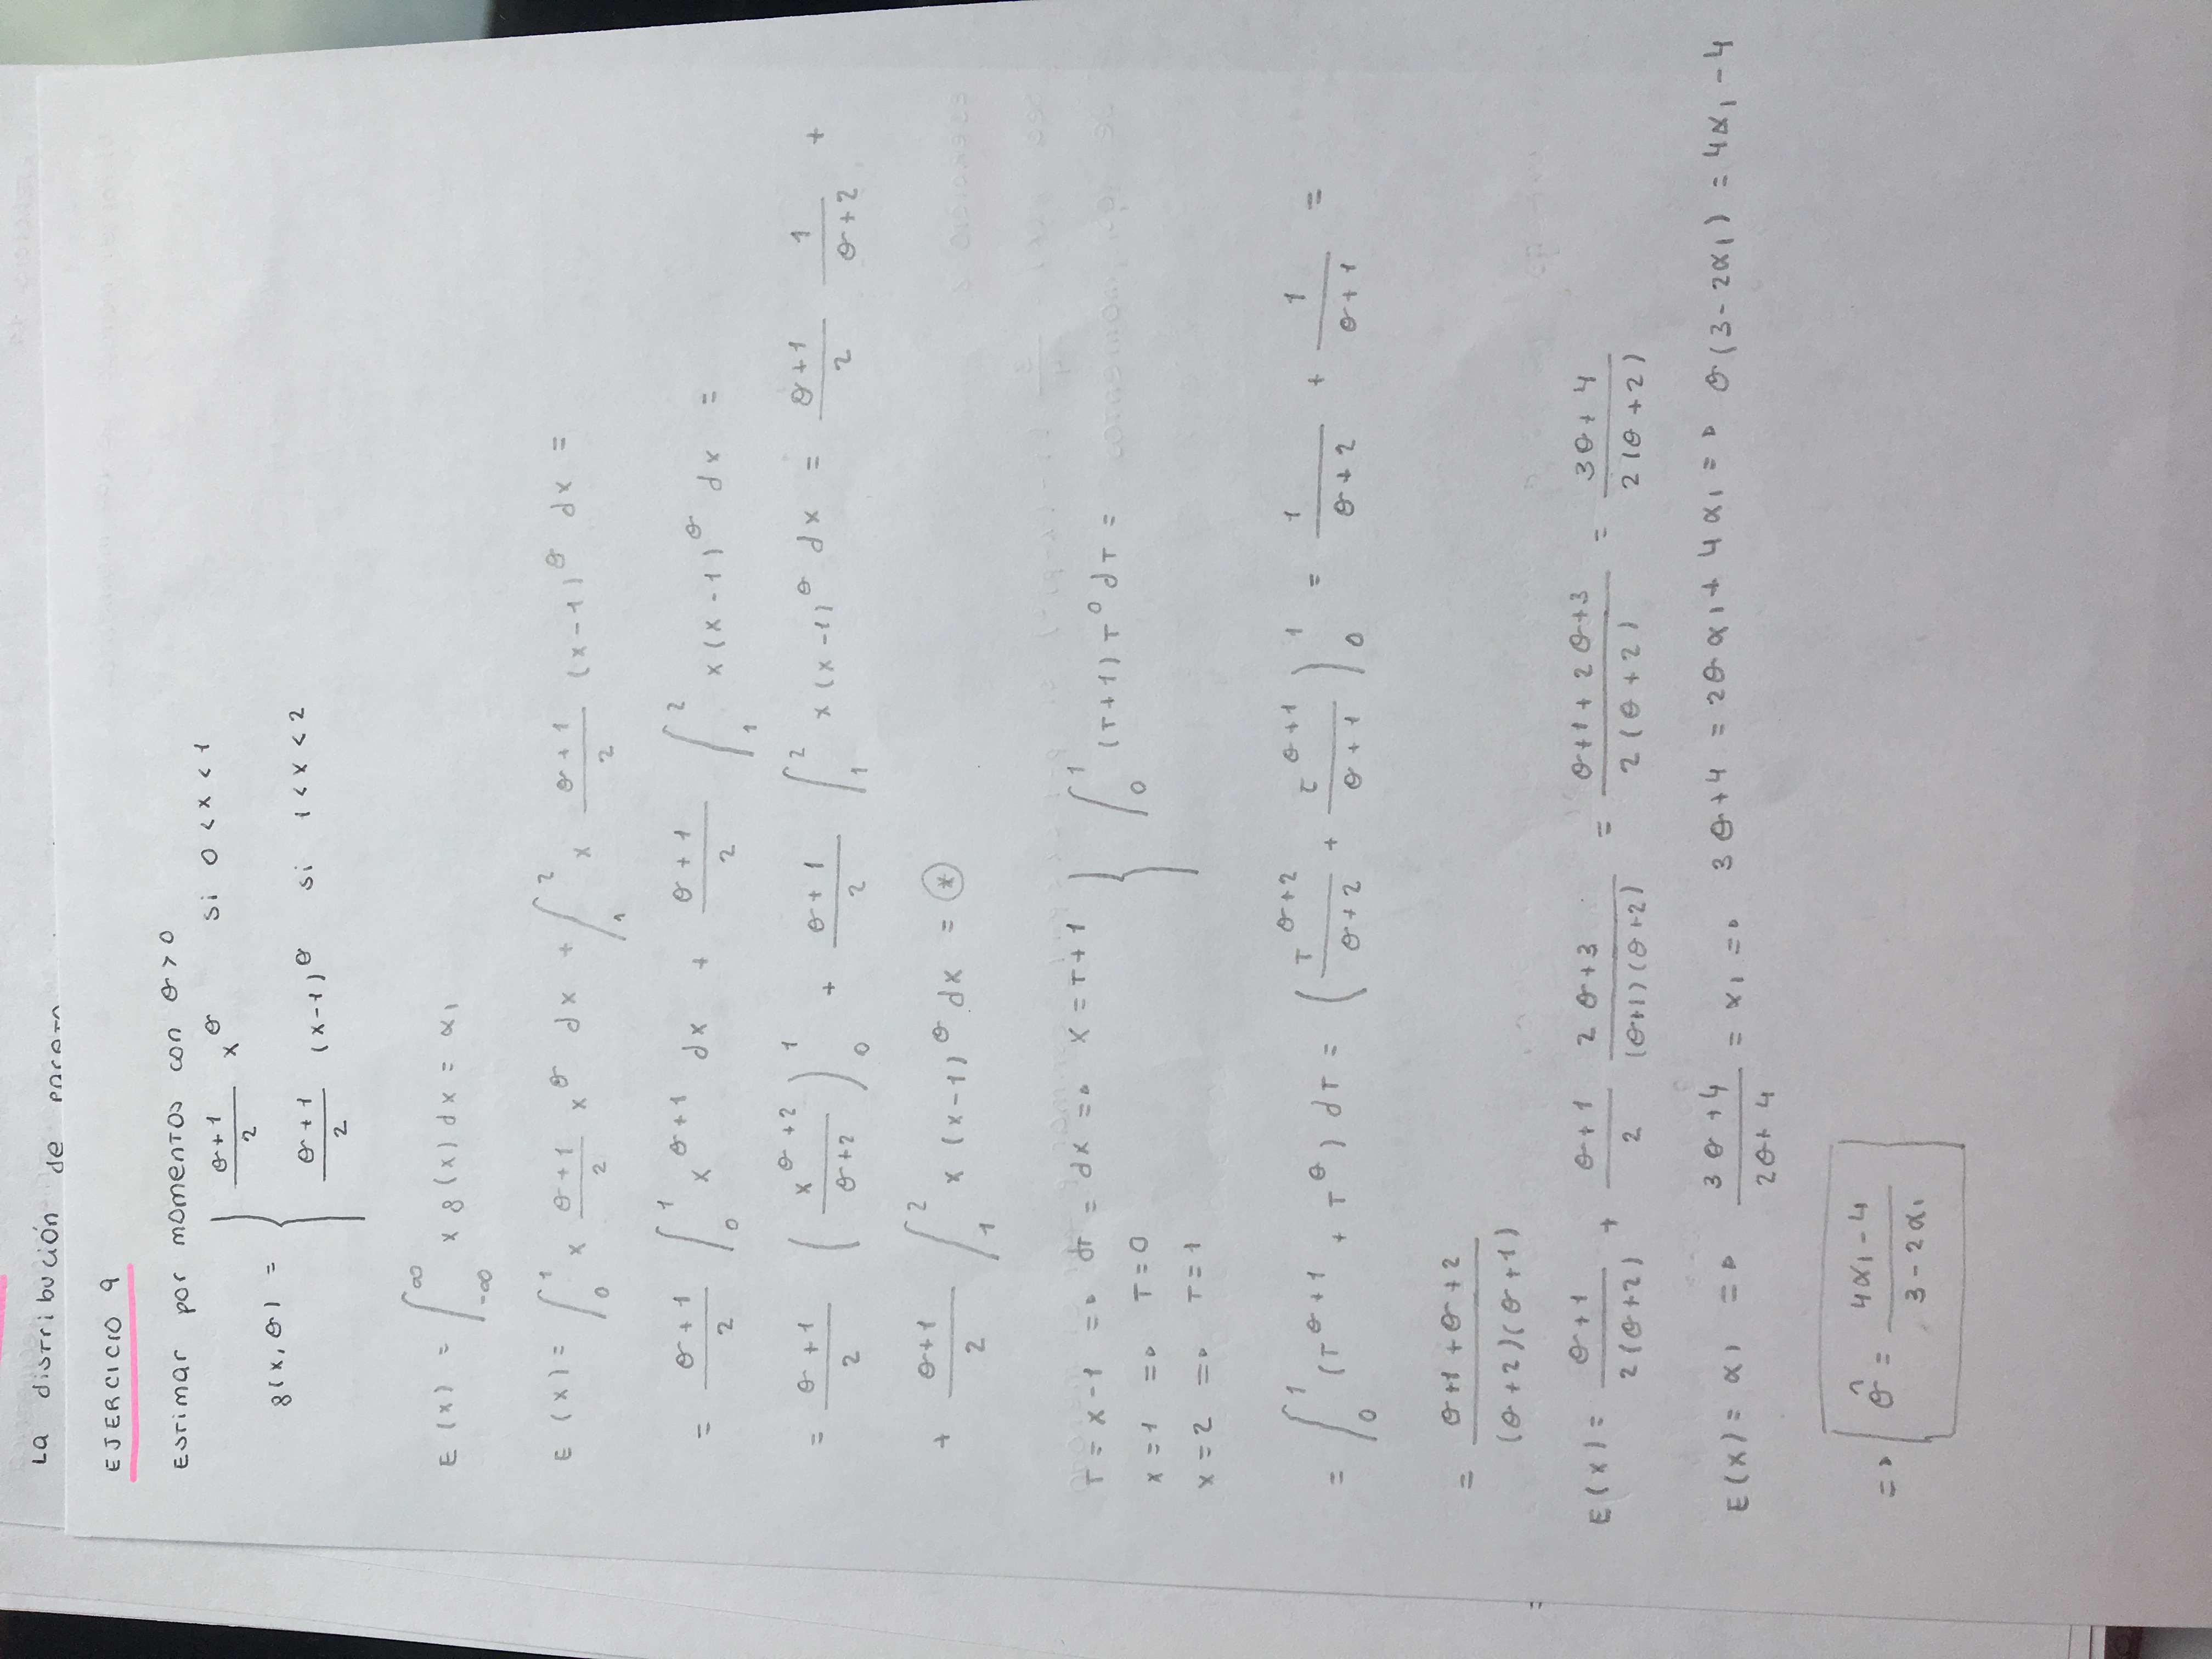 La distribución de
EJERCICIO 9
Estimar por momentos con θ > 0
f(x, θ) = { (θ+1)/2 x^θ si 0 < x < 1
(θ+1)/2 (x-1)^θ si 1 < x < 2
E(x) = ∫_{-∞}^{∞} x f(x) dx = α₁
E(x) = ∫_0^1 x (θ+1)/2 x^θ dx + ∫_1^2 x (θ+1)/2 (x-1)^θ dx =
= (θ+1)/2 ∫_0^1 x^{θ+1} dx + (θ+1)/2 ∫_1^2 x(x-1)^θ dx =
= (θ+1)/2 (x^{θ+2}/(θ+2))_0^1 + (θ+1)/2 ∫_1^2 x(x-1)^θ dx = (θ+1)/2 1/(θ+2) +
+ (θ+1)/2 ∫_1^2 x(x-1)^θ dx = ⊛
T = x-1 => dT = dx => x = T+1 } ∫_0^1 (T+1) T^θ dT =
x = 1 => T = 0
x = 2 => T = 1
= ∫_0^1 (T^{θ+1} + T^θ) dT = (T^{θ+2}/(θ+2) + T^{θ+1}/(θ+1))_0^1 = 1/(θ+2) + 1/(θ+1) =
= (θ+1+θ+2)/((θ+2)(θ+1))
E(x) = (θ+1)/(2(θ+2)) + (θ+1)/2 (2θ+3)/((θ+1)(θ+2)) = (θ+1+2θ+3)/(2(θ+2)) = (3θ+4)/(2(θ+2))
E(x) = α₁ => (3θ+4)/(2θ+4) = α₁ => 3θ+4 = 2θα₁ + 4α₁ => θ(3-2α₁) = 4α₁-4
=> θ̂ = (4α₁-4)/(3-2α₁)